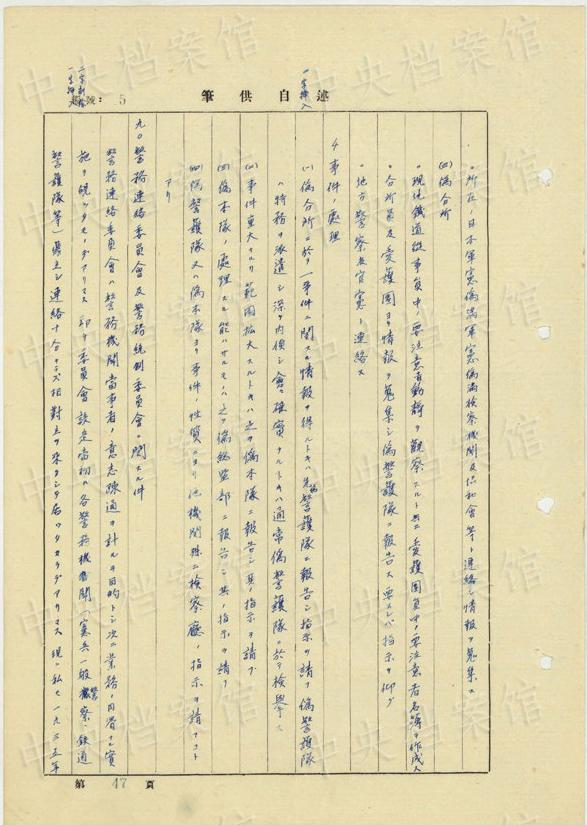 筆供自述
號: 5
一字挿入
二字削除
一字挿入
・所在ノ日本軍憲偽満軍憲偽満検察機関及協和會等ト連絡シ情報ヲ蒐集ス
(四)偽分所
・現地鐵道従事員中ノ要注意者動静ヲ観察スルト共ニ愛護團員中ノ要注意者名簿ヲ作成ス
・分所員及愛護團ヨリ情報ヲ蒐集シ偽警護隊ニ報告ス 要スレバ指示ヲ仰グ
・地方警察官憲ト連絡ス
4 事件ノ處理
(一)偽分所ニ於テ一事件ニ関スル情報ヲ得ルトキハ先偽警護隊ニ報告シ指示ヲ請フ偽警護隊
ハ特務ヲ派遣シ深ク内偵シ確實ナルトキハ通常偽警護隊ニ於テ検挙ス
(二)事件重大ナルカ範囲拡大スルトキハ之ヲ偽本隊ニ報告シ其ノ指示ヲ請フ
(三)偽本隊ノ處理スル能ハザルモノハ之ヲ偽総監部ニ報告シ其ノ指示ヲ請フ
(四)偽警護隊又ハ偽本隊ヨリ事件ノ性質ニヨリ他機関殊ニ検察廳ノ指示ヲ請フコト
アリ
九〇警務連絡委員會及警務統制委員會ニ関スル件
警務連絡委員會ハ警務機関當事者ノ意志疎通ヲ計ルヲ目的トシ次ニ業務ノ円滑ナル實
施ヲ
即チ委員會設定當初ハ各警務機関(憲兵一般警察、鉄道
警護隊等)
連絡十分ナラズ相對立
現ニ私ハ一九三五年
第 47 頁
中央档案馆